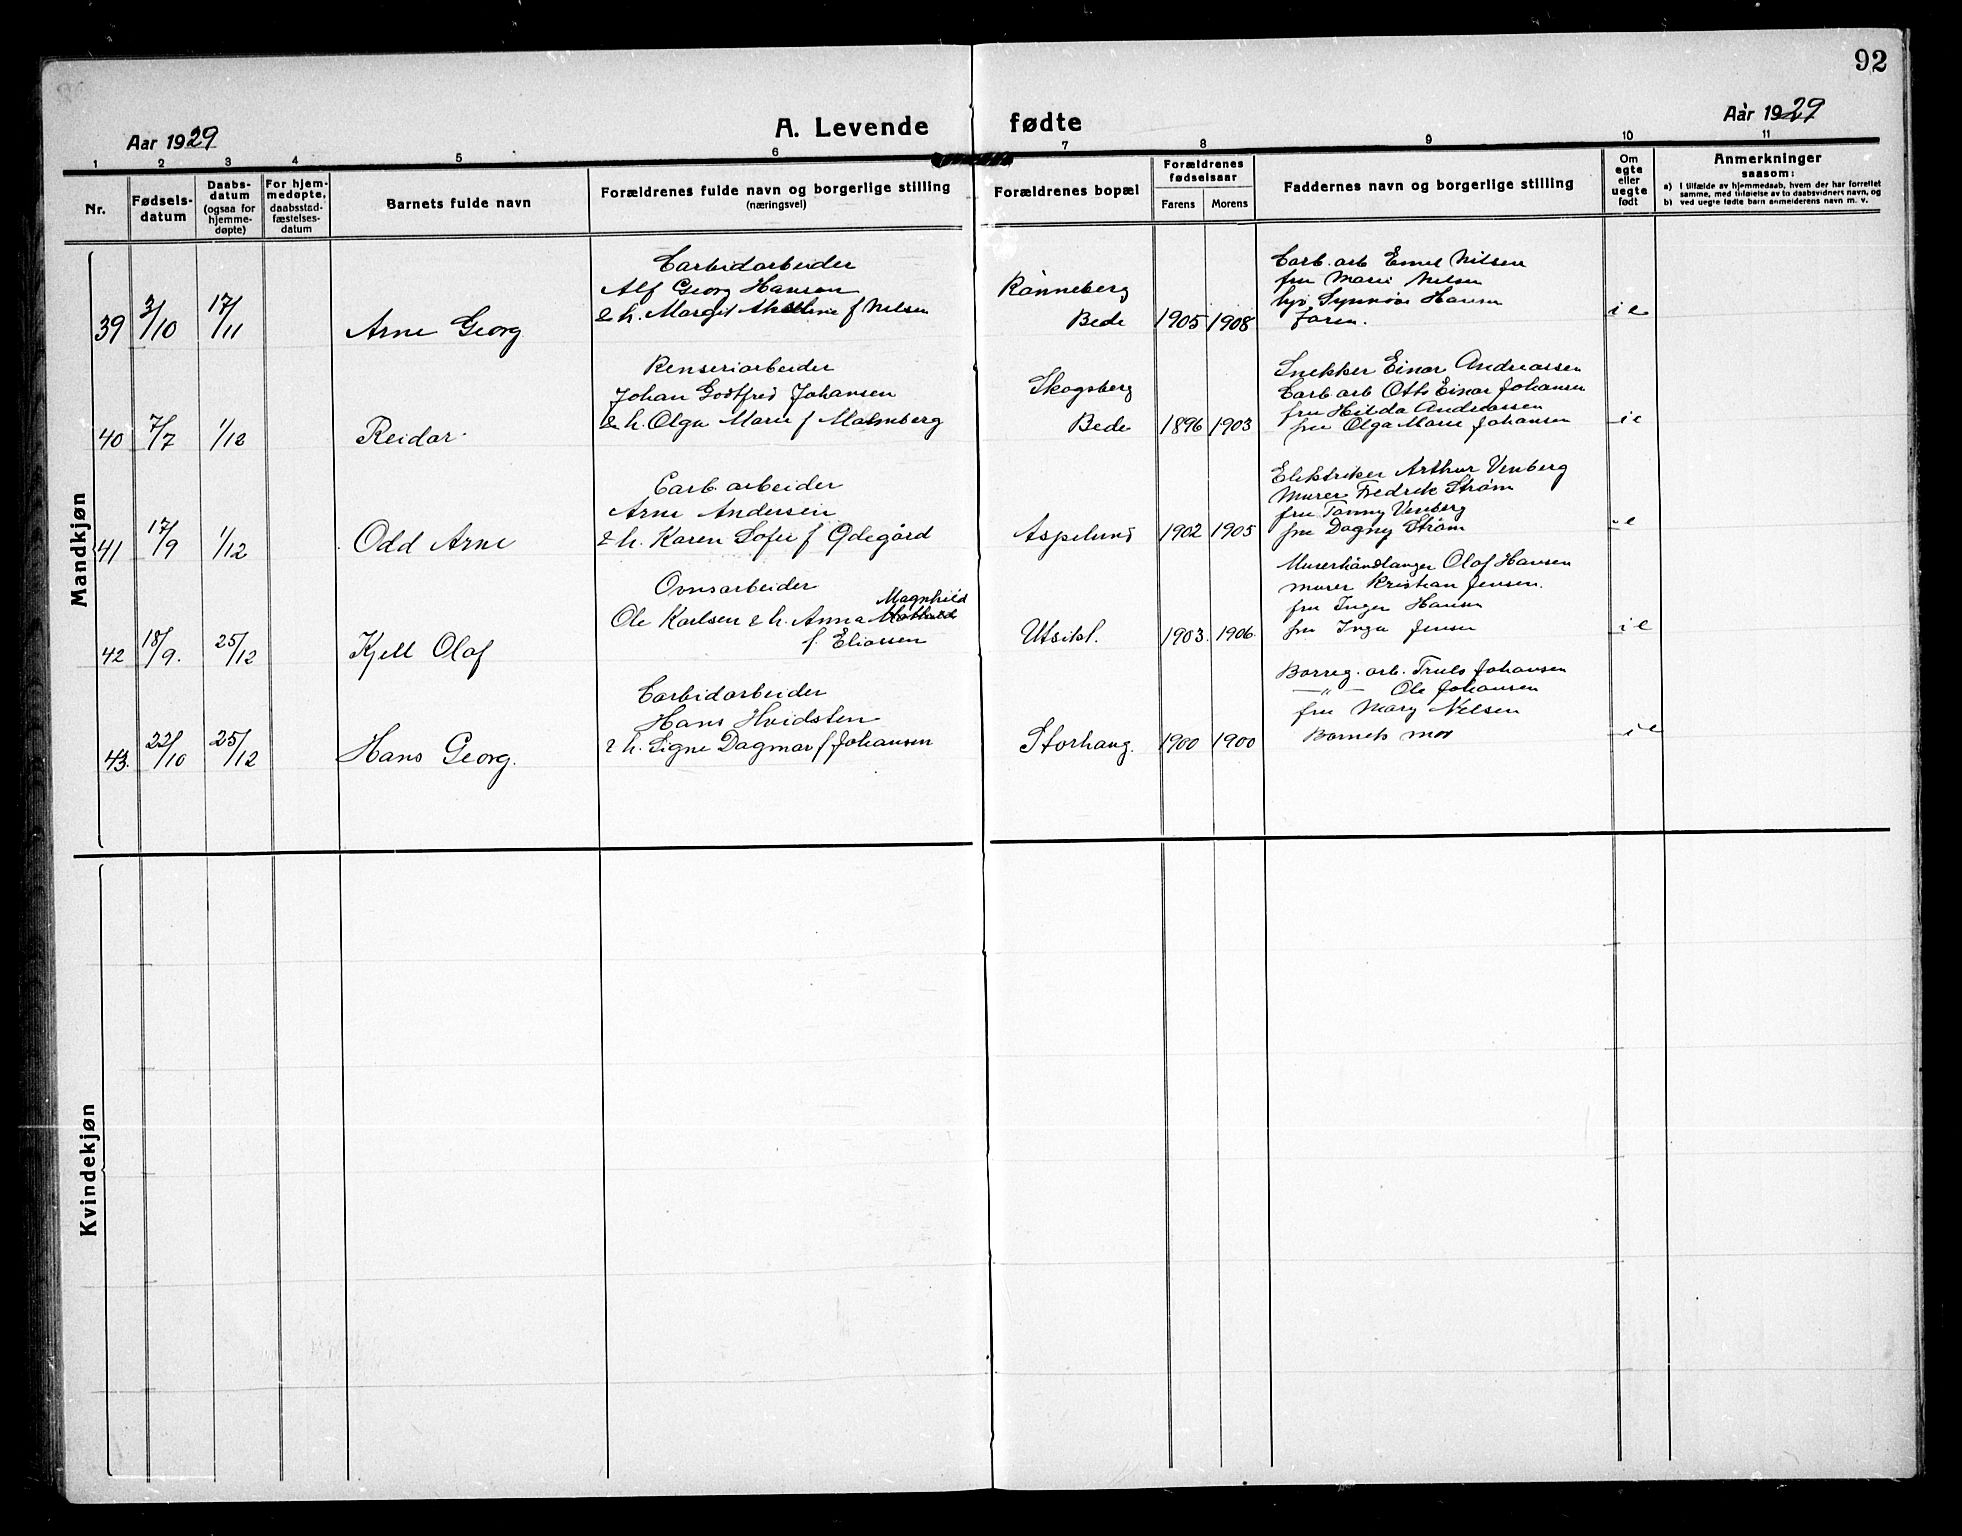 92
Aar 1929
A. Levende fødte
Aar 1929
1 2 3 4 5 6 7 8 9 10 11
Nr.
Fødsels-
datum
Daabs-
datum
(ogsaa for
hjemme-
døpte)
For hjem-
medøpte,
daabsstad-
fæstelses-
datum
Barnets fulde navn
Forældrenes fulde navn og borgerlige stilling
(næringsvei)
Forældrenes bopæl
Forældrenes
fødselsaar
Farens Morens
Faddernes navn og borgerlige stilling
Om
egte
eller
uegte
født
Anmerkninger
saasom:
a) I tilfælde av hjemmedaab, hvem der har forrettet
samme, med tilføielse av to daabsvidners navn, og
b) ved uegte fødte barn anmelderens navn m. v.
Mandkjøn
39 3/10 17/11 Arne Georg
Carbidarbeider
Alf Georg Hansen
& h. Margit f Nilsen
Rønneberg
Bede 1905 1908
Carb. arb Emil Nilsen
fru Marie Nilsen
Synnøve Hansen
Faren.
ie
40 7/7 1/12 Reidar.
Renseriarbeider
Johan Godtfred Johansen
& h. Olga Marie f Malmberg
Skogsberg
Bede 1896 1903
Snekker Einar Andreassen
Carb arb Otto Einar Johansen
fru Hilda Andreassen
fru Olga Marie Johansen
ie
41 17/9 1/12 Odd Arne
Carb. arbeider
Arne Andersen
& h. Karen Sofie f Ødegård
Aspelund 1902 1905
Elektriker Arthur Venberg
Murer Fredrik Strøm
fru Fanny Venberg
fru Dagny Strøm
ie
42 18/9. 25/12 Kjell Olaf
Ovnsarbeider
Magnhild
Ole Karlsen & h. Anna
f. Eliassen
Utsikt. 1903. 1906.
Murerhåndlanger Olaf Hansen
murer Kristian Jensen.
fru Inger Hansen
fru Inga Jensen
ie
43. 22/10 25/12 Hans Georg.
Carbidarbeider
Hans Hvidsten
& h. Signe Dagmar f Johansen
Storhaug. 1900 1900
Borreg. arb. Truls Johansen
— " — Ole Johansen
fru Mary Nelsen
Barnets mor
ie
Kvindekjøn